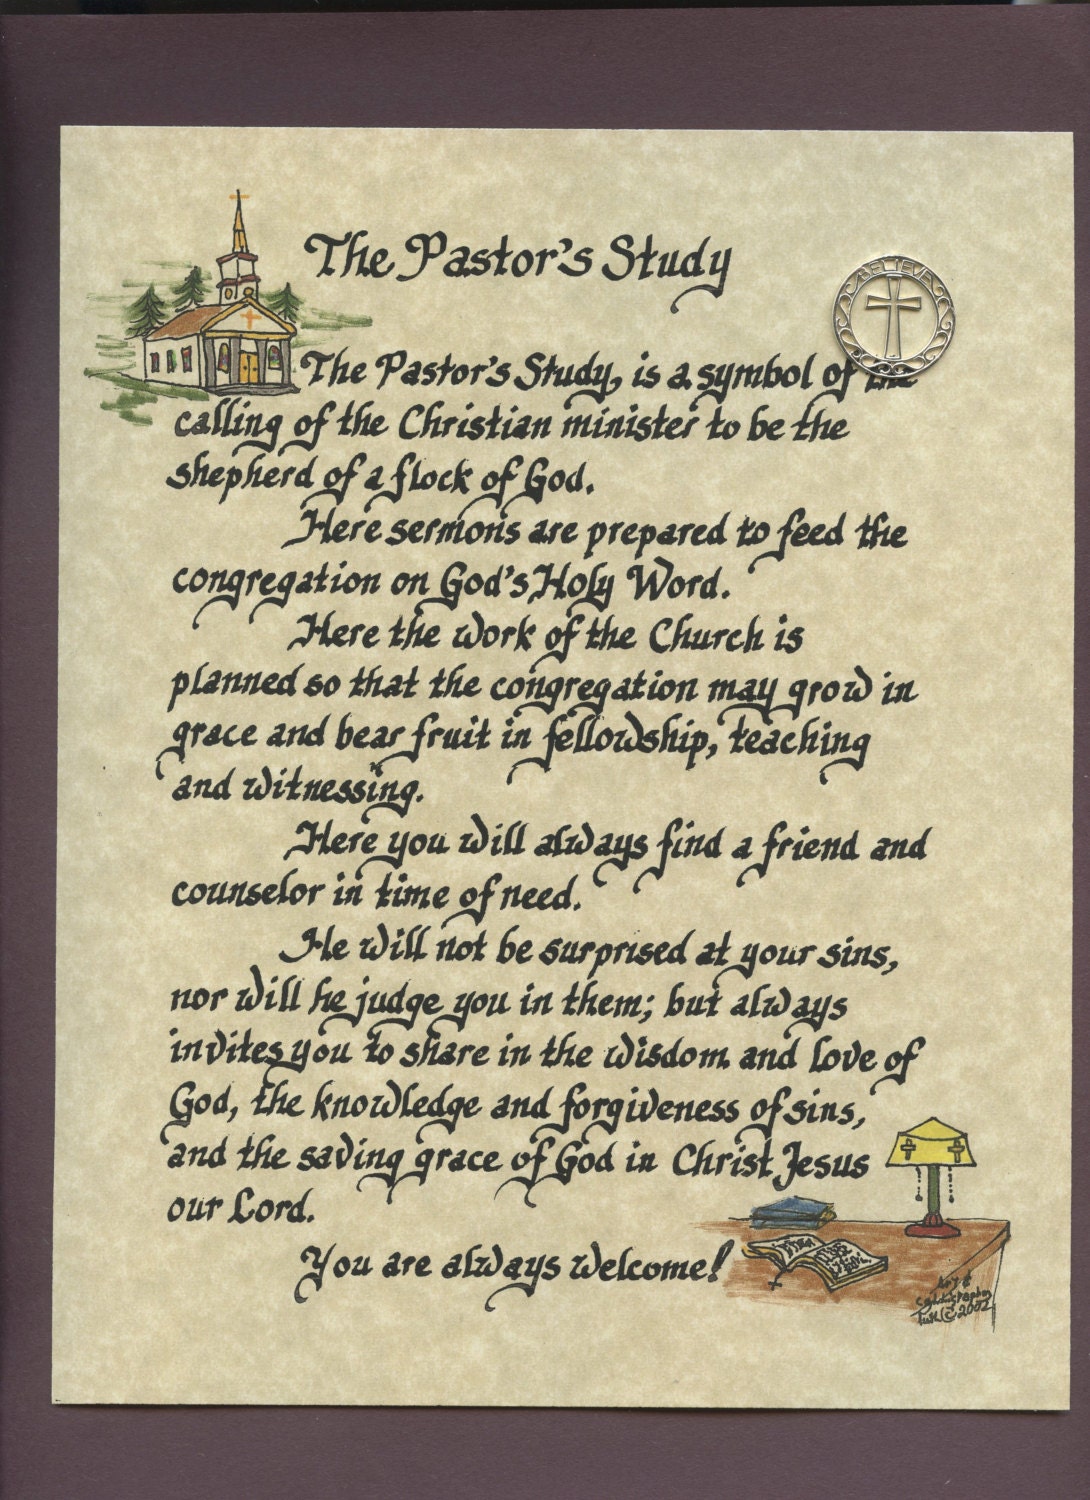 The Pastor's Study
BELIEVE
The Pastor's Study, is a symbol of the
calling of the Christian minister to be the
shepherd of a flock of God.
Here sermons are prepared to feed the
congregation on God's Holy Word.
Here the work of the Church is
planned so that the congregation may grow in
grace and bear fruit in fellowship, teaching
and witnessing.
Here you will always find a friend and
counselor in time of need.
He will not be surprised at your sins,
nor will he judge you in them; but always
invites you to share in the wisdom and love of
God, the knowledge and forgiveness of sins,
and the saving grace of God in Christ Jesus
our Lord.
You are always welcome!
Art &
© 2002